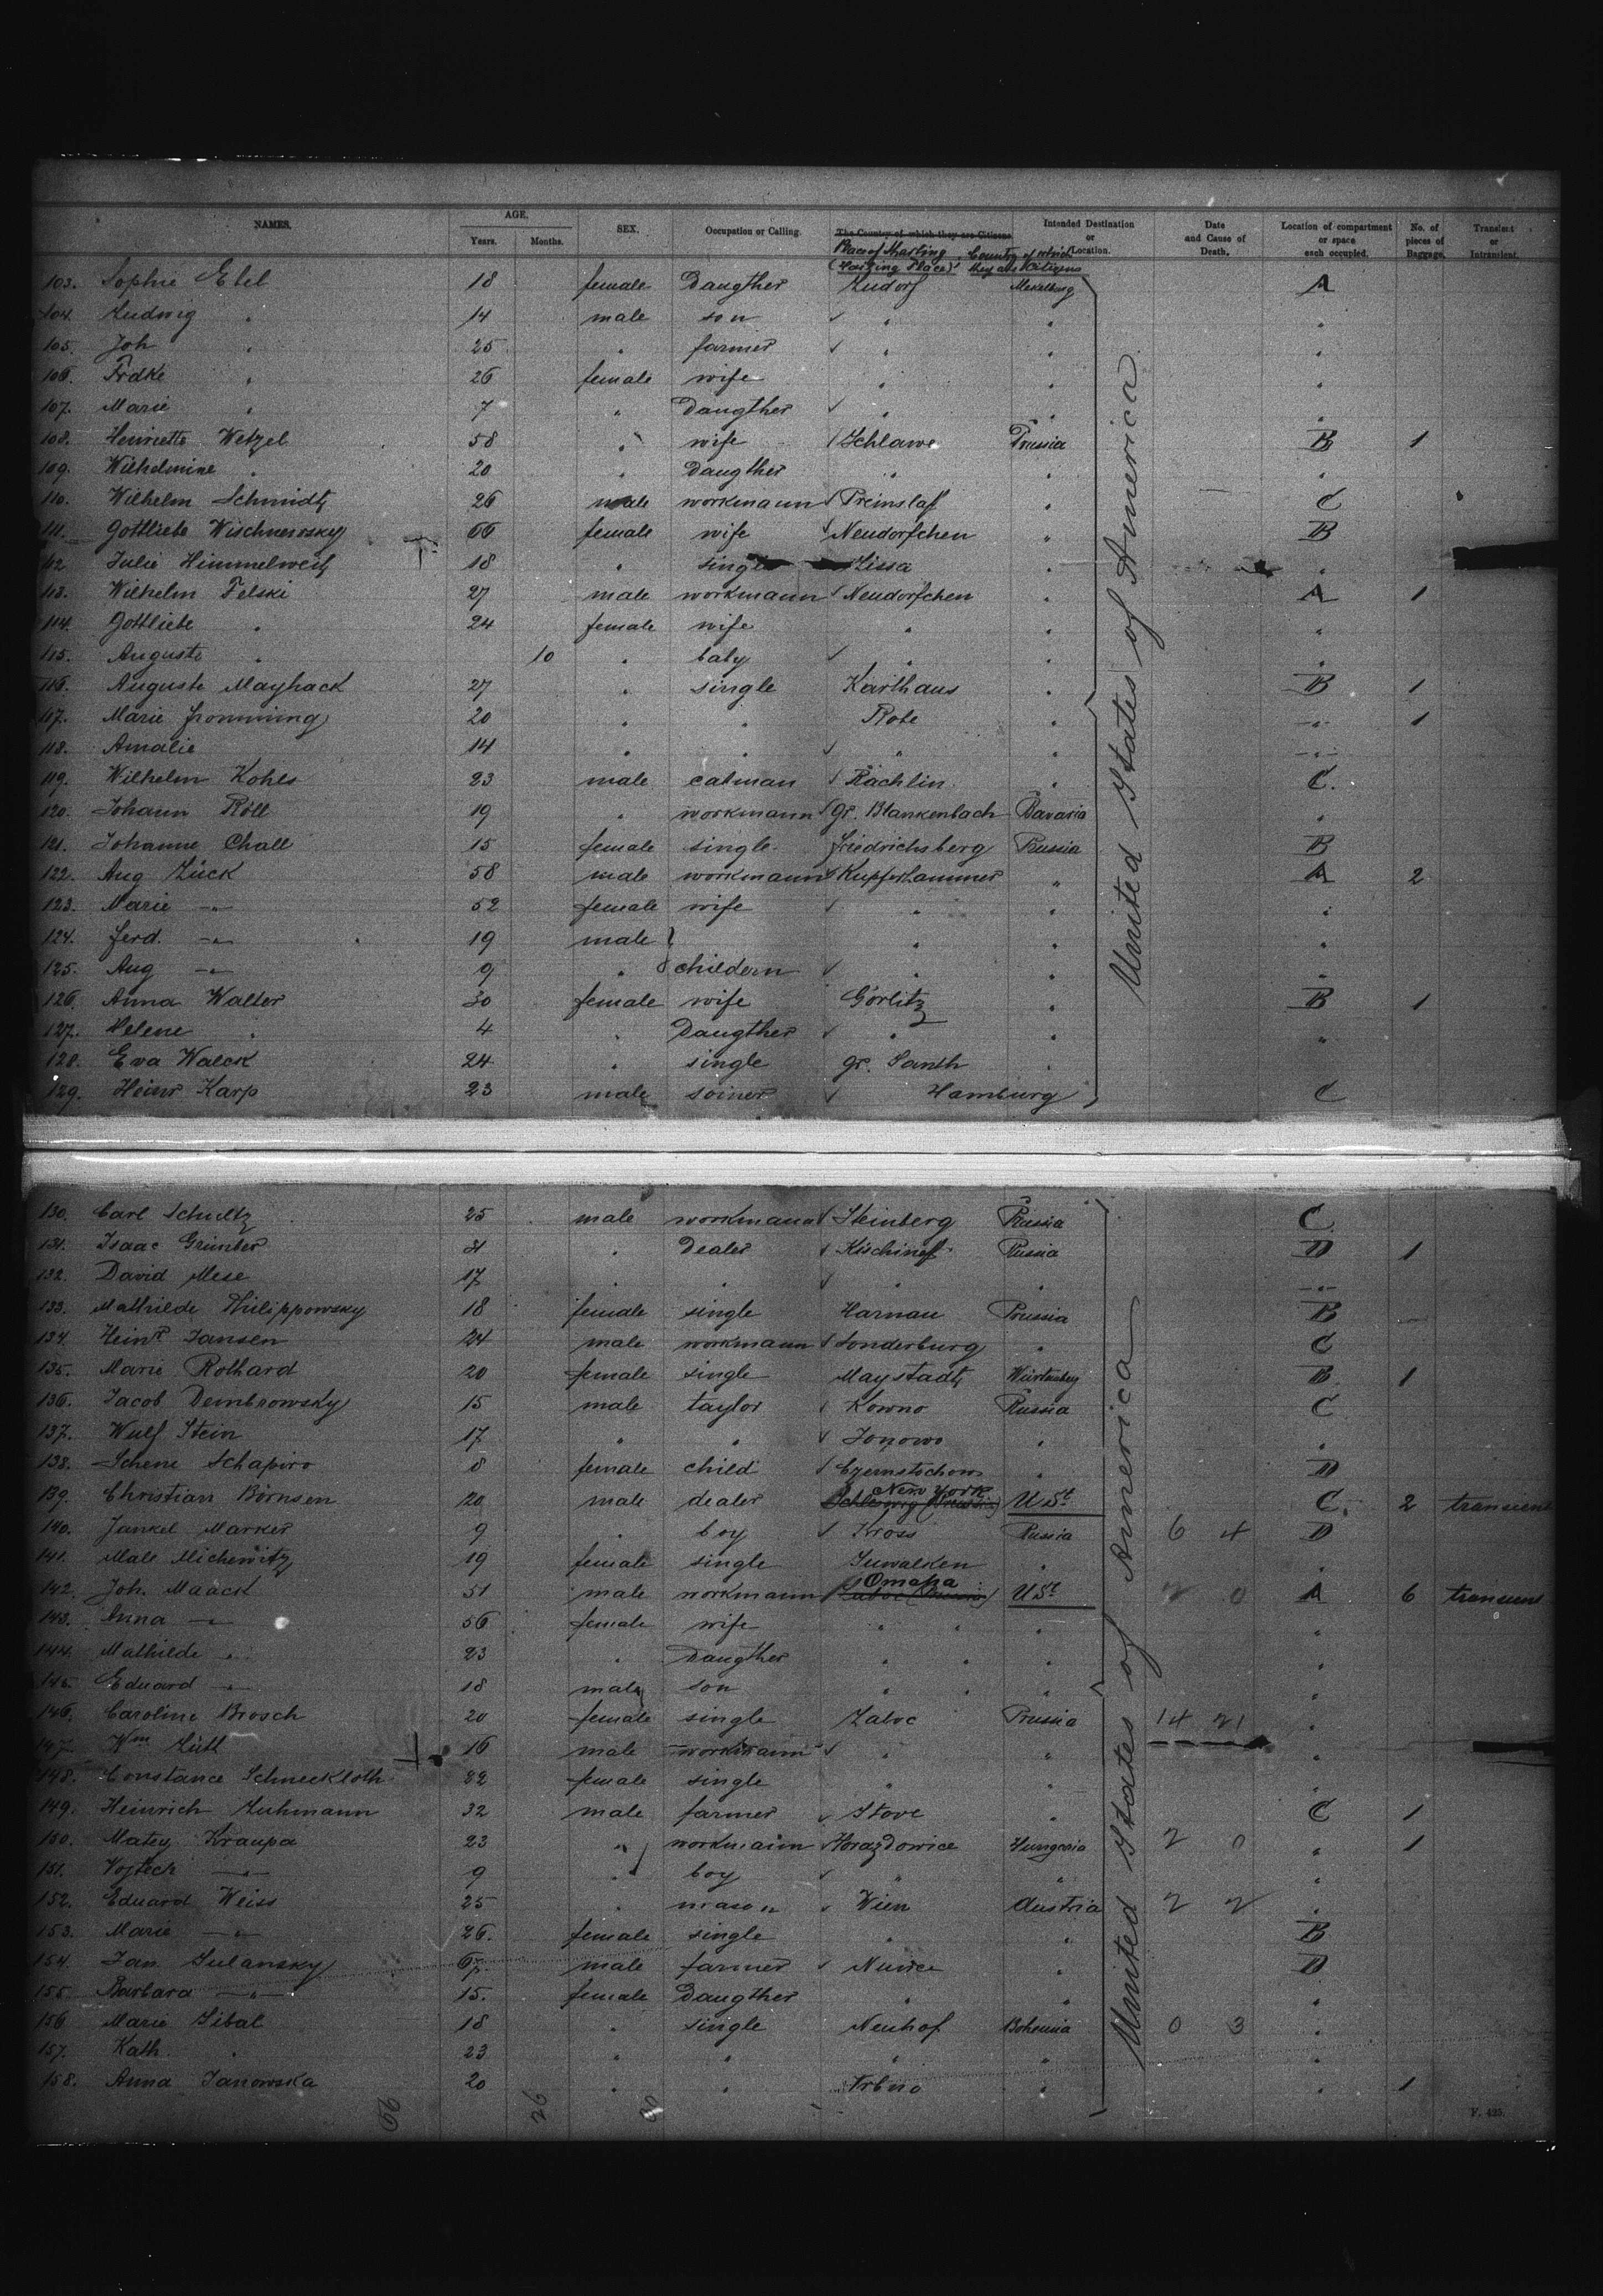 NAMES. AGE. Years. Months. SEX. Occupation or Calling. The Country of which they are Citizens Intended Destination or Location. Date and Cause of Death. Location of compartment or space each occupied. No. of pieces of Baggage. Transient or Intransient.
Place of Starting (Loising Place) Country of which they are Citizens
103. Sophie Ebel 18 female Daugther Ludorf Meklburg A
104. Ludwig " 14 male son " "
105. Joh " 25 " farmer " "
106. Frdke " 26 female wife " "
107. Marie " 7 " Daugther " "
108. Henriette Wetzel 58 " wife Schlawe Prussia B 1
109. Wilhelmine " 20 " Daugther " " "
110. Wilhelm Schmidt 26 male workmann Premslaff " C
111. Gottliebe Wischnewsky 66 female wife Neudörfchen " B
112. Julie Himmelweit 18 " single Lissa " "
113. Wilhelm Felski 27 male workmann Neudörfchen " A 1
114. Gottliebe " 24 female wife " " "
115. Auguste " 10 " baby " " "
116. Auguste Mayhack 27 " single Karthaus " B 1
117. Marie Fromming 20 " " Rote " " 1
118. Amalie 14 " " " "
119. Wilhelm Kohls 23 male catman Rächlin " C.
120. Johann Röll 19 " workmann gr. Blankenbach Bavaria "
121. Johanne Chall 15 female single Friedrichsberg Prussia B
122. Aug Lück 58 male workmann Kupferhammer " A 2
123. Marie " 52 female wife " " "
124. Ferd. " 19 male " " "
125. Aug " 9 " childern " " "
126. Anna Walter 30 female wife Görlitz " B 1
127. Helene " 4 " Daugther " " "
128. Eva Walck 24 " single gr. Santh "
129. Heinr Karp 23 male soiner Hamburg C
United States of America
130. Carl Schultz 25 male workmann Steinberg Prussia C
131. Isaac Grünber 21 " Dealer Kischineff Russia D 1
132. David Mese 17 " " " " "
133. Mathilde Philippowsky 18 female single Harnau Prussia B
134. Heinr Jansen 24 male workmann Sonderburg " C
135. Marie Rothard 20 female single Maystadt Würtenberg B 1
136. Jacob Dembrowsky 15 male taylor Kowno Russia C
137. Wulf Stein 17 " " Jonowo " "
138. Schene Schapiro 8 female child Czemstochow " D
139. Christian Börnsen 20 male dealer Schleswig (Prussia) New York U St C. 2 transient
140. Jankel Marker 9 " boy Kross Russia 6 4 D
141. Male Michewitz 19 female single Suwalken " "
142. Joh. Maack 51 male workmann Omaha U St 2 0 A 6 transient
143. Anna " 56 female wife " " " "
144. Mathilde " 23 " Daugther " " " "
145. Eduard " 18 male son " " " "
146. Caroline Brosch 20 female single Laboe Prussia 14 21 "
147. Wm Lütt 16 male workmann " " "
148. Constance Schneekloth 22 female single " " "
149. Heinrich Luhmann 32 male farmer Stove " C 1
150. Matey Kraupa 23 " workmann Horazdowice Hungaria 2 0 " 1
151. Vojtech " 9 " boy " " "
152. Eduard Weiss 25 " mason Wien Austria 2 2 "
153. Marie " 26. female single " " B
154. Jan Sulansky 67. male farmer " D
155. Barbara " 15. female Daugther " " "
156 Marie Sibal 18 " single Neuhof Bohemia 0 3 "
157. Kath. " 23 " " " " "
158. Anna Janowska 20 " " " " 1
United States of America
F. 425.